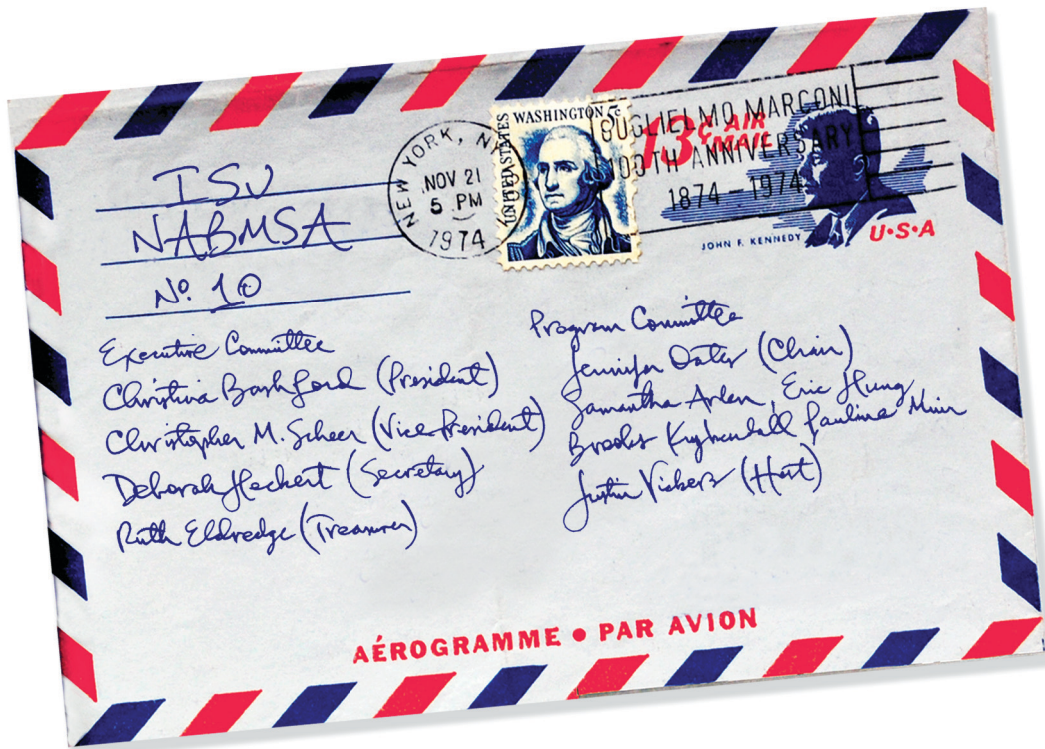 ISU
NABMSA
No. 10
NEW YORK, N
NOV 21
5 PM
1974
UNITED STATES
WASHINGTON 5c
GUGLIELMO MARCONI
100TH ANNIVERSARY
1874 - 1974
13¢ AIR
MAIL
JOHN F. KENNEDY
U·S·A
Executive Committee
Christina Bashford (President)
Christopher M. Scheer (Vice President)
Deborah Heckert (Secretary)
Ruth Eldredge (Treasurer)
Program Committee
Jennifer Oates (Chair)
Samantha Arten, Eric Hung,
Brooks Kuykendall Pauline Muir
Justin Vickers (Host)
AÉROGRAMME • PAR AVION